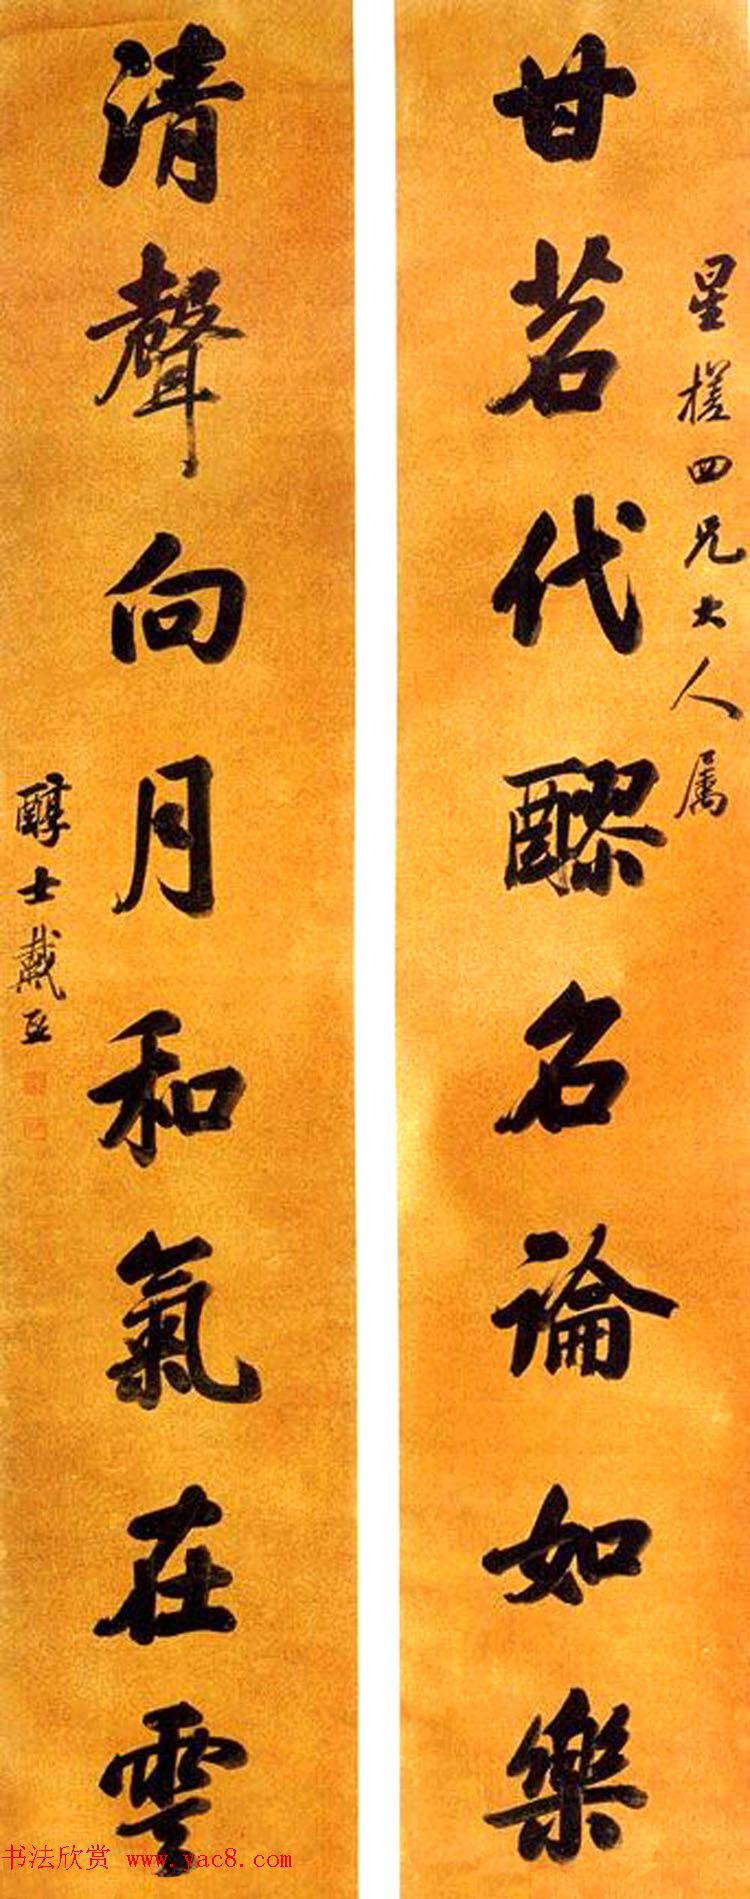 星槎四兄大人属
甘茗代醪名論如樂
清聲向月和氣在雲
醇士戴熙
书法欣赏 www.yac8.com